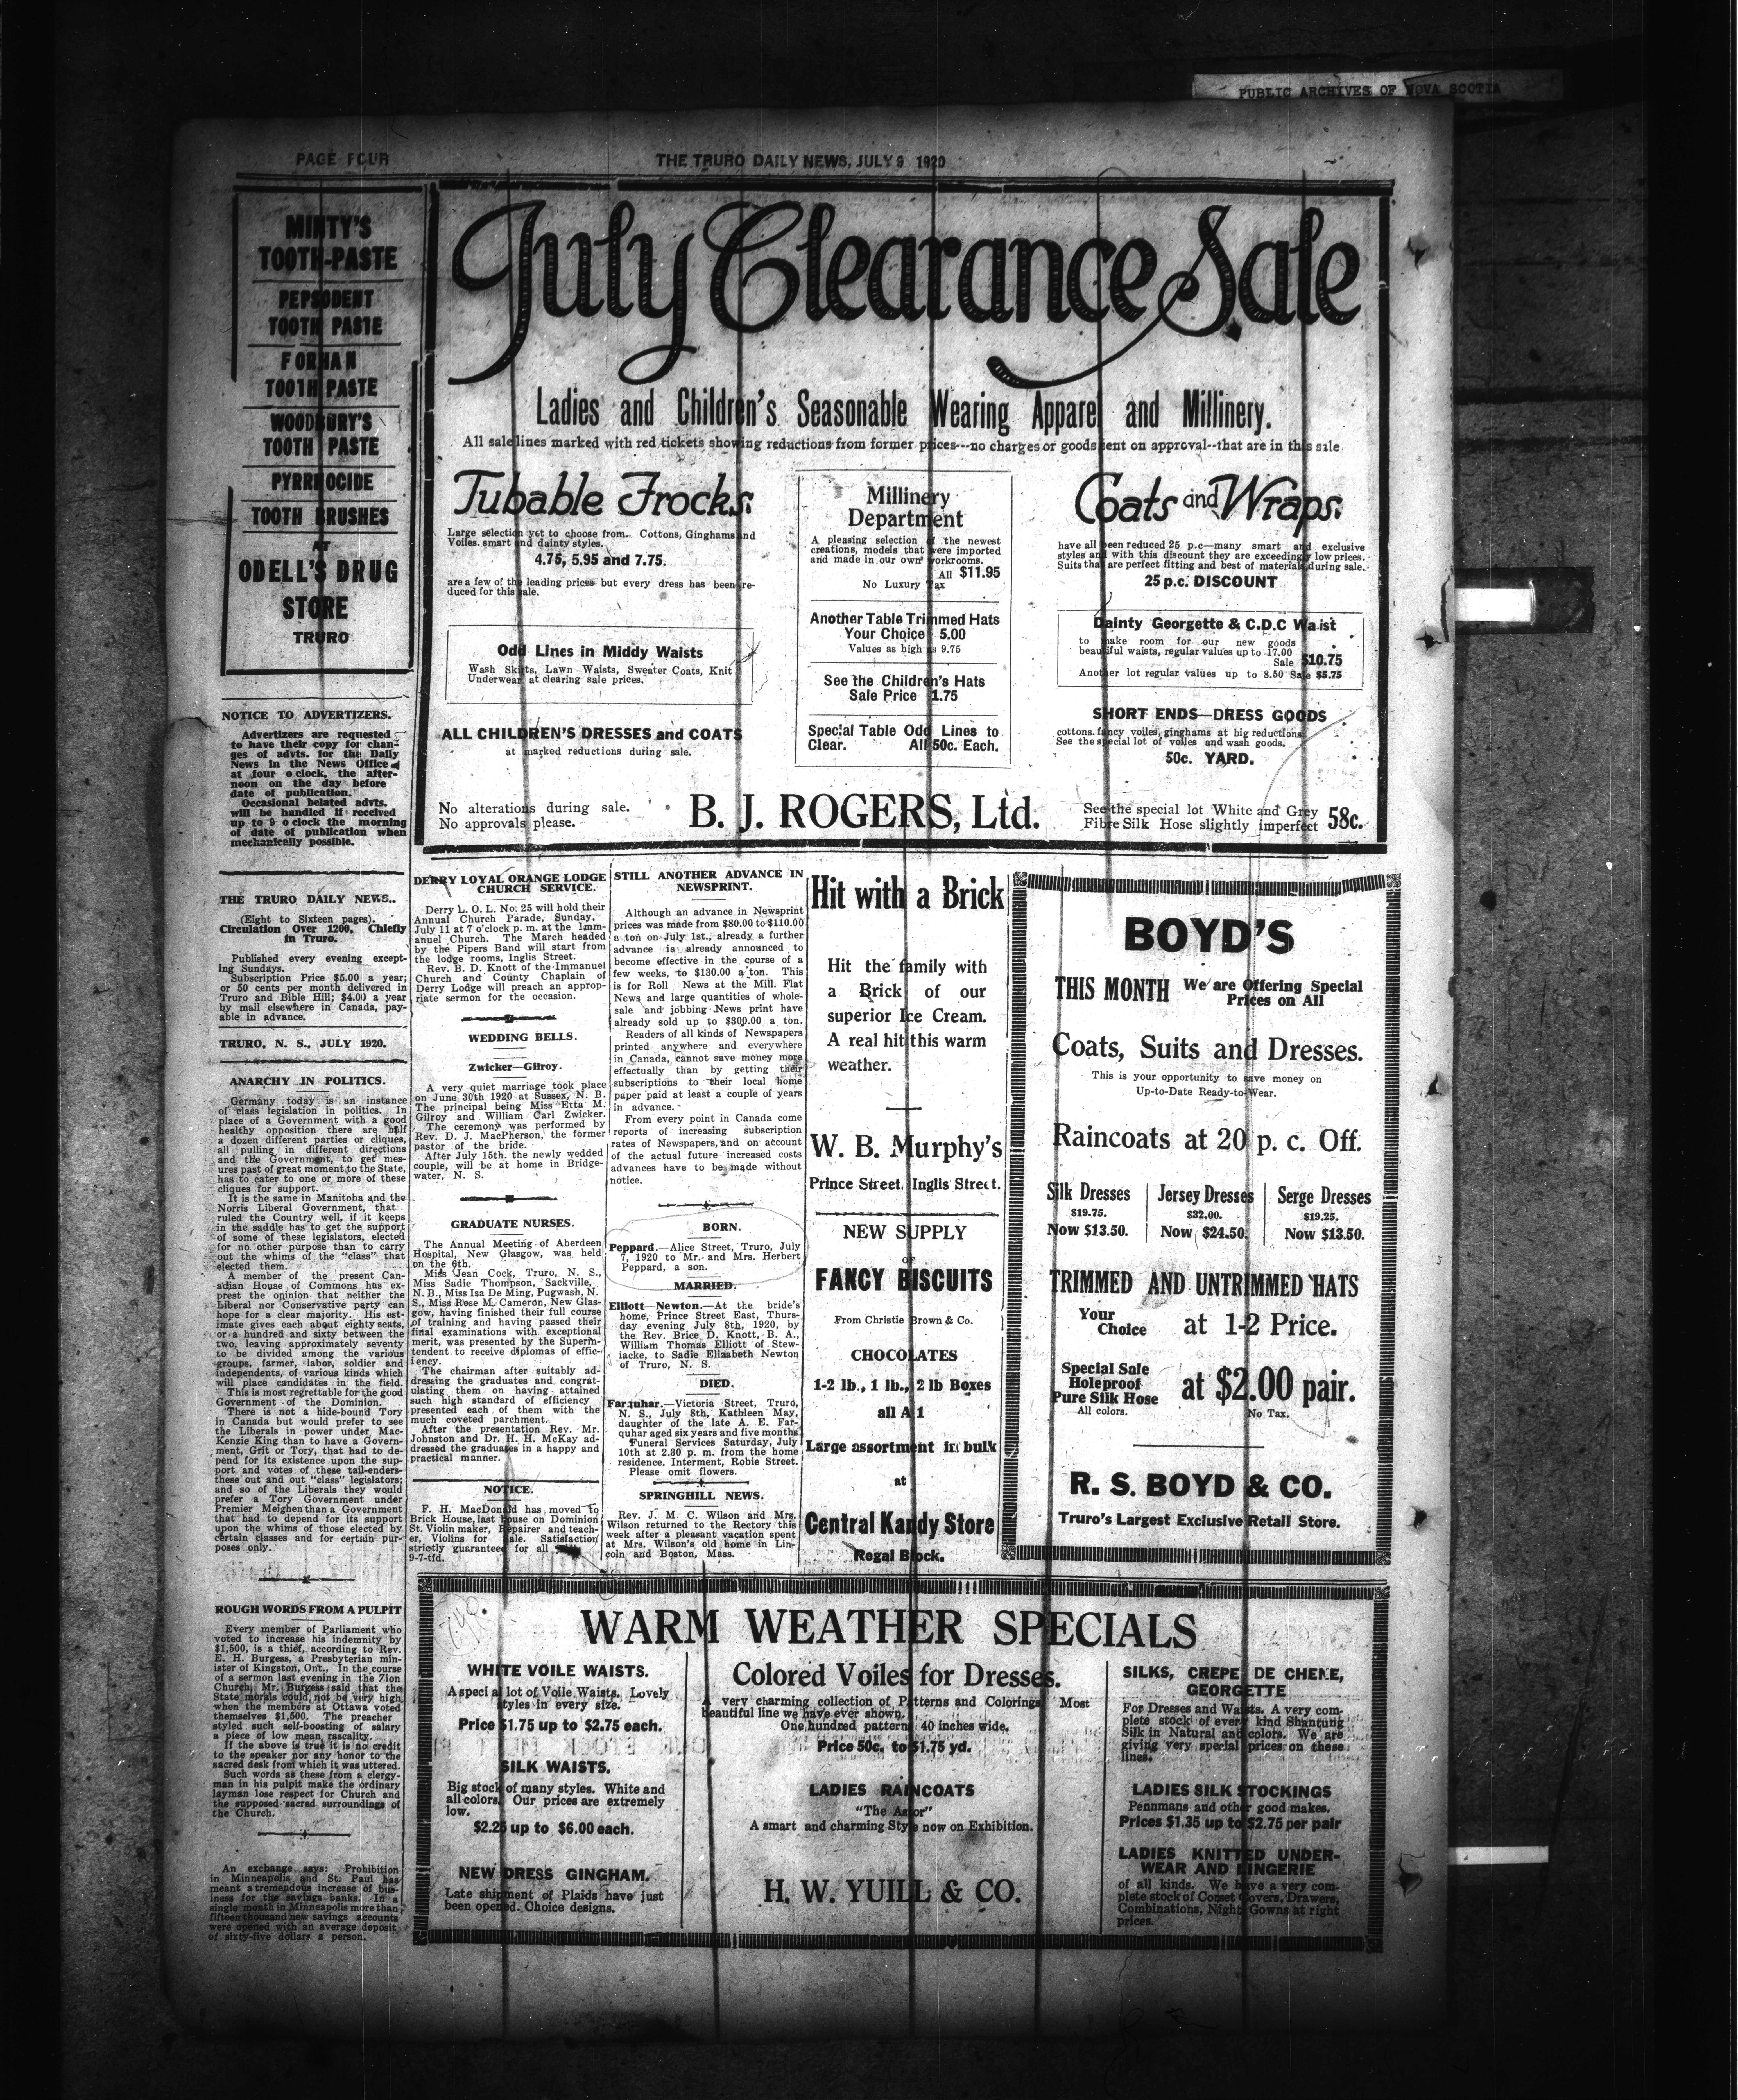 PUBLIC ARCHIVES OF NOVA SCOTIA
PAGE FOUR
THE TRURO DAILY NEWS, JULY 9 1920
MINTY'S
TOOTH-PASTE
PEPSODENT
TOOTH PASTE
FORHAN
TOOTH PASTE
WOODBURY'S
TOOTH PASTE
PYRRHOCIDE
TOOTH BRUSHES
AT
ODELL'S DRUG
STORE
TRURO
NOTICE TO ADVERTIZERS.
Advertizers are requested
to have their copy for chan-
ges of advts. for the Daily
News in the News Office
at four o clock, the after-
noon on the day before
date of publication.
Occasional belated advts.
will be handled if received
up to 9 o clock the morning
of date of publication when
mechanically possible.
THE TRURO DAILY NEWS..
(Eight to Sixteen pages).
Circulation Over 1200. Chiefly
in Truro.
Published every evening except-
ing Sundays.
Subscription Price $5.00 a year;
or 50 cents per month delivered in
Truro and Bible Hill; $4.00 a year
by mail elsewhere in Canada, pay-
able in advance.
TRURO, N. S., JULY 1920.
ANARCHY IN POLITICS.
Germany today is an instance
of class legislation in politics. In
place of a Government with a good
healthy opposition there are half
a dozen different parties or cliques,
all pulling in different directions
and the Government, to get mes-
ures past of great moment to the State,
has to cater to one or more of these
cliques for support.
It is the same in Manitoba and the
Norris Liberal Government, that
ruled the Country well, if it keeps
in the saddle has to get the support
of some of these legislators, elected
for no other purpose than to carry
out the whims of the "class" that
elected them.
A member of the present Can-
adian House of Commons has ex-
prest the opinion that neither the
Liberal nor Conservative party can
hope for a clear majority. His est-
imate gives each about eighty seats,
or a hundred and sixty between the
two, leaving approximately seventy
to be divided among the various
groups, farmer, labor, soldier and
independents, of various kinds which
will place candidates in the field.
This is most regrettable for the good
Government of the Dominion.
There is not a hide-bound Tory
in Canada but would prefer to see
the Liberals in power under Mac-
Kenzie King than to have a Govern-
ment, Grit or Tory, that had to de-
pend for its existence upon the sup-
port and votes of these tail-enders-
these out and out "class" legislators;
and so of the Liberals they would
prefer a Tory Government under
Premier Meighen than a Government
that had to depend for its support
upon the whims of those elected by
certain classes and for certain pur-
poses only.
ROUGH WORDS FROM A PULPIT
Every member of Parliament who
voted to increase his indemnity by
$1,500, is a thief, according to Rev.
E. H. Burgess, a Presbyterian min-
ister of Kingston, Ont., In the course
of a sermon last evening in the Zion
Church, Mr. Burgess said that the
State morals could not be very high,
when the members at Ottawa voted
themselves $1,500. The preacher
styled such self-boosting of salary
a piece of low mean rascality.
If the above is true it is no credit
to the speaker nor any honor to the
sacred desk from which it was uttered.
Such words as these from a clergy-
man in his pulpit make the ordinary
layman lose respect for Church and
the supposed sacred surroundings of
the Church.
An exchange says: Prohibition
in Minneapolis and St. Paul has
meant a tremendous increase of bus-
iness for the savings banks. In a
single month in Minneapolis more than
fifteen thousand new savings accounts
were opened with an average deposit
of sixty-five dollars a person.
July Clearance Sale
Ladies and Children's Seasonable Wearing Apparel and Millinery.
All sale lines marked with red tickets showing reductions from former prices---no charges or goods sent on approval--that are in this sale
Tubable Frocks.
Large selection yet to choose from. Cottons, Ginghams and
Voiles. smart and dainty styles.
4.75, 5.95 and 7.75.
are a few of the leading prices but every dress has been re-
duced for this sale.
Odd Lines in Middy Waists
Wash Skirts, Lawn Waists, Sweater Coats, Knit
Underwear at clearing sale prices.
ALL CHILDREN'S DRESSES and COATS
at marked reductions during sale.
No alterations during sale.
No approvals please.
Millinery
Department
A pleasing selection of the newest
creations, models that were imported
and made in our own workrooms.
All $11.95
No Luxury Tax
Another Table Trimmed Hats
Your Choice 5.00
Values as high as 9.75
See the Children's Hats
Sale Price 1.75
Special Table Odd Lines to
Clear. All 50c. Each.
B. J. ROGERS, Ltd.
Coats and Wraps.
have all been reduced 25 p.c—many smart and exclusive
styles and with this discount they are exceedingly low prices.
Suits that are perfect fitting and best of materials during sale.
25 p.c. DISCOUNT
Dainty Georgette & C.D.C Waist
to make room for our new goods
beautiful waists, regular values up to 17.00
Sale $10.75
Another lot regular values up to 8.50 Sale $5.75
SHORT ENDS—DRESS GOODS
cottons, fancy voiles, ginghams at big reductions.
See the special lot of voiles and wash goods.
50c. YARD.
See the special lot White and Grey
Fibre Silk Hose slightly imperfect 58c.
DERRY LOYAL ORANGE LODGE
CHURCH SERVICE.
Derry L. O. L. No. 25 will hold their
Annual Church Parade, Sunday,
July 11 at 7 o'clock p. m. at the Imm-
anuel Church. The March headed
by the Pipers Band will start from
the lodge rooms, Inglis Street.
Rev. B. D. Knott of the Immanuel
Church and County Chaplain of
Derry Lodge will preach an approp-
riate sermon for the occasion.
WEDDING BELLS.
Zwicker—Gilroy.
A very quiet marriage took place
on June 30th 1920 at Sussex, N. B.
The principal being Miss Etta M.
Gilroy and William Carl Zwicker.
The ceremony was performed by
Rev. D. J. MacPherson, the former
pastor of the bride.
After July 15th. the newly wedded
couple, will be at home in Bridge-
water, N. S.
GRADUATE NURSES.
The Annual Meeting of Aberdeen
Hospital, New Glasgow, was held
on the 6th.
Miss Jean Cock, Truro, N. S.,
Miss Sadie Thompson, Sackville,
N. B., Miss Isa De Ming, Pugwash, N.
S., Miss Rose M. Cameron, New Glas-
gow, having finished their full course
of training and having passed their
final examinations with exceptional
merit, was presented by the Superin-
tendent to receive diplomas of effic-
iency.
The chairman after suitably ad-
dressing the graduates and congrat-
ulating them on having attained
such high standard of efficiency
presented each of them with the
much coveted parchment.
After the presentation Rev. Mr.
Johnston and Dr. H. H. McKay ad-
dressed the graduates in a happy and
practical manner.
NOTICE.
F. H. MacDonald has moved to
Brick House, last house on Dominion
St. Violin maker, Repairer and teach-
er, Violins for Sale. Satisfaction
strictly guaranteed for all
9-7-tfd.
STILL ANOTHER ADVANCE IN
NEWSPRINT.
Although an advance in Newsprint
prices was made from $80.00 to $110.00
a ton on July 1st., already a further
advance is already announced to
become effective in the course of a
few weeks, to $130.00 a ton. This
is for Roll News at the Mill. Flat
News and large quantities of whole-
sale and jobbing News print have
already sold up to $300.00 a ton.
Readers of all kinds of Newspapers
printed anywhere and everywhere
in Canada, cannot save money more
effectually than by getting their
subscriptions to their local home
paper paid at least a couple of years
in advance.
From every point in Canada come
reports of increasing subscription
rates of Newspapers, and on account
of the actual future increased costs
advances have to be made without
notice.
BORN.
Peppard.—Alice Street, Truro, July
7, 1920 to Mr. and Mrs. Herbert
Peppard, a son.
MARRIED.
Elliott—Newton.—At the bride's
home, Prince Street East, Thurs-
day evening July 8th, 1920, by
the Rev. Brice D. Knott, B. A.,
William Thomas Elliott of Stew-
iacke, to Sadie Elizabeth Newton
of Truro, N. S.
DIED.
Farquhar.—Victoria Street, Truro,
N. S., July 8th, Kathleen May,
daughter of the late A. E. Far-
quhar aged six years and five months.
Funeral Services Saturday, July
10th at 2.30 p. m. from the home
residence. Interment, Robie Street.
Please omit flowers.
SPRINGHILL NEWS.
Rev. J. M. C. Wilson and Mrs.
Wilson returned to the Rectory this
week after a pleasant vacation spent
at Mrs. Wilson's old home in Lin-
coln and Boston, Mass.
Hit with a Brick
Hit the family with
a Brick of our
superior Ice Cream.
A real hit this warm
weather.
W. B. Murphy's
Prince Street. Inglis Street.
NEW SUPPLY
OF
FANCY BISCUITS
From Christie Brown & Co.
CHOCOLATES
1-2 lb., 1 lb., 2 lb Boxes
all A 1
Large assortment in bulk
at
Central Kandy Store
Regal Block.
BOYD'S
THIS MONTH We are Offering Special
Prices on All
Coats, Suits and Dresses.
This is your opportunity to save money on
Up-to-Date Ready-to-Wear.
Raincoats at 20 p. c. Off.
Silk Dresses
$19.75.
Now $13.50.
Jersey Dresses
$32.00.
Now $24.50.
Serge Dresses
$19.25.
Now $13.50.
TRIMMED AND UNTRIMMED HATS
Your
Choice at 1-2 Price.
Special Sale
Holeproof
Pure Silk Hose at $2.00 pair.
All colors. No Tax.
R. S. BOYD & CO.
Truro's Largest Exclusive Retail Store.
WARM WEATHER SPECIALS
WHITE VOILE WAISTS.
A special lot of Voile Waists. Lovely
styles in every size.
Price $1.75 up to $2.75 each.
SILK WAISTS.
Big stock of many styles. White and
all colors. Our prices are extremely
low.
$2.25 up to $6.00 each.
NEW DRESS GINGHAM.
Late shipment of Plaids have just
been opened. Choice designs.
Colored Voiles for Dresses.
A very charming collection of Patterns and Colorings. Most
beautiful line we have ever shown.
One hundred patterns 40 inches wide.
Price 50c. to $1.75 yd.
LADIES RAINCOATS
"The Astor"
A smart and charming Style now on Exhibition.
H. W. YUILL & CO.
SILKS, CREPE DE CHENE,
GEORGETTE
For Dresses and Waists. A very com-
plete stock of every kind Shantung
Silk in Natural and colors. We are
giving very special prices on these
lines.
LADIES SILK STOCKINGS
Pennmans and other good makes.
Prices $1.35 up to $2.75 per pair
LADIES KNITTED UNDER-
WEAR AND LINGERIE
of all kinds. We have a very com-
plete stock of Corset Covers, Drawers,
Combinations, Night Gowns at right
prices.